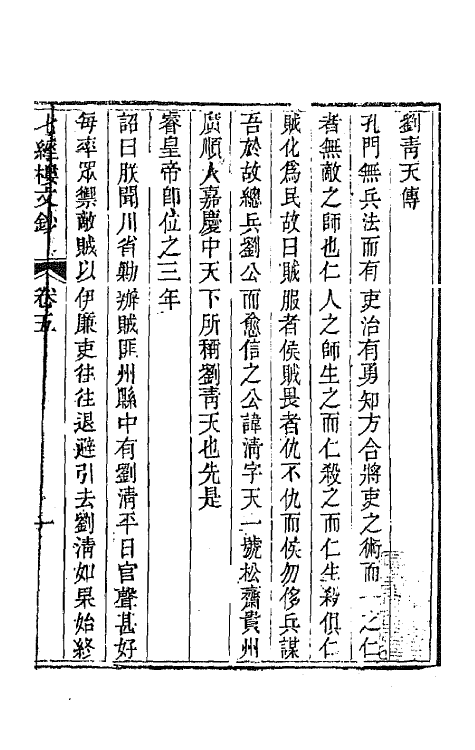 劉靑天傳
孔門無兵法而有吏治有勇知方合將吏之術而一之仁
者無敵之師也仁人之師生之而仁殺之而仁生殺俱仁
賊化爲民故曰賊服者侯賊畏者仇不仇而侯勿侈兵謀
吾於故總兵劉公而愈信之公諱淸字天一號松齋貴州
廣順人嘉慶中天下所稱劉靑天也先是
睿皇帝卽位之三年
詔曰朕聞川省勦辦賊匪州縣中有劉淸平日官聲甚好
每率眾禦敵賊以伊廉吏往往退避引去劉淸如果始終
七經樓文鈔 卷五